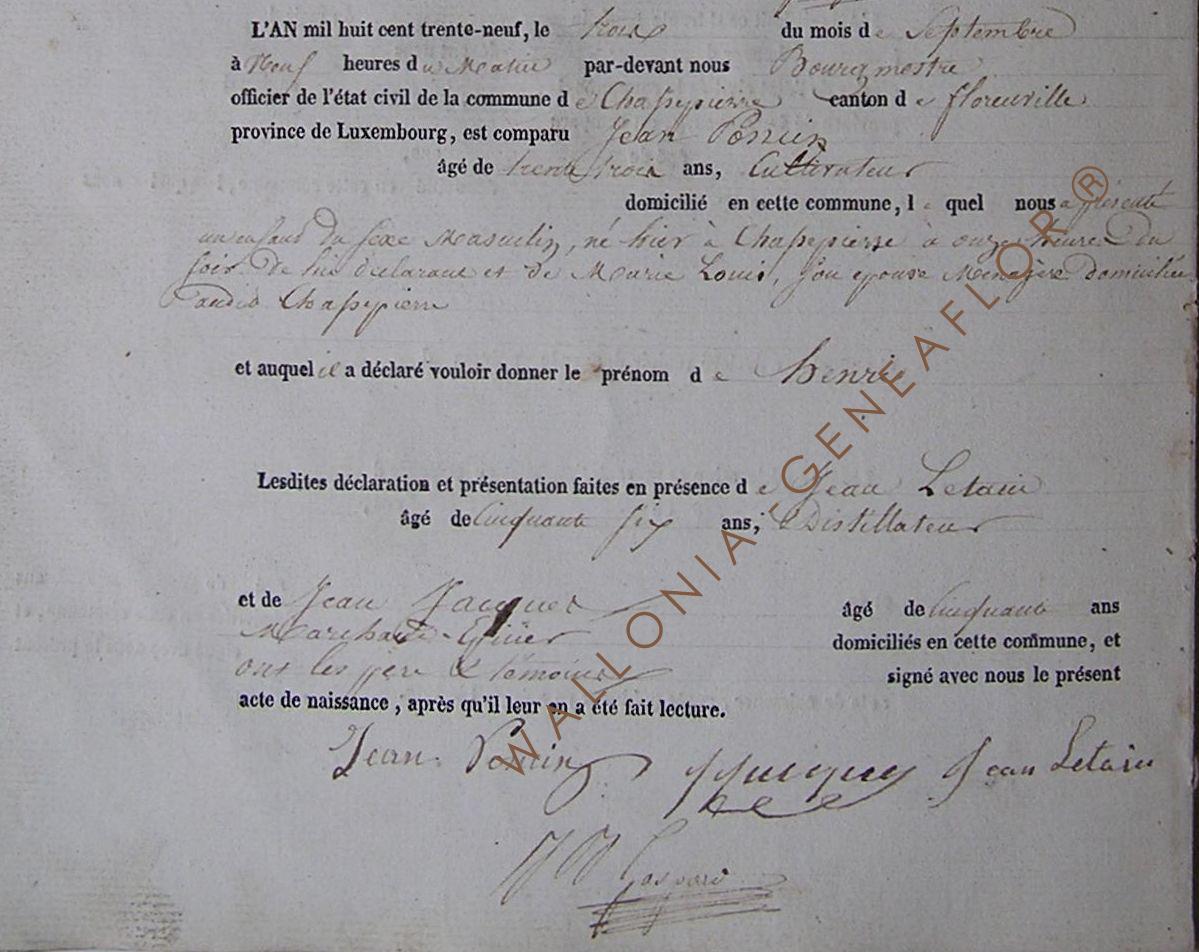 L'AN mil huit cent trente-neuf, le trois du mois de Septembre
à Neuf heures du Matin par-devant nous Bourgmestre
officier de l'état civil de la commune de Chassepierre canton de florenville
province de Luxembourg, est comparu Jean
âgé de trente trois ans, Cultivateur
domicilié en cette commune, le quel nous a présenté
un enfant du sexe Masculin, né hier à Chassepierre à onze heures du
soir de lui déclarant et de Marie Louis, son epouse Menagère domiciliée
audit Chassepierre
et auquel il a déclaré vouloir donner le prénom de henri
Lesdites déclaration et présentation faites en présence de Jean Letain
âgé de cinquante six ans, Distillateur
et de Jean Jacques âgé de cinquante ans
Marchand domiciliés en cette commune, et
ont les père & témoins signé avec nous le présent
acte de naissance, après qu'il leur en a été fait lecture.
Jean JJacques Jean Letain
Gaspard
WALLONIA-GENEAFLOR ®